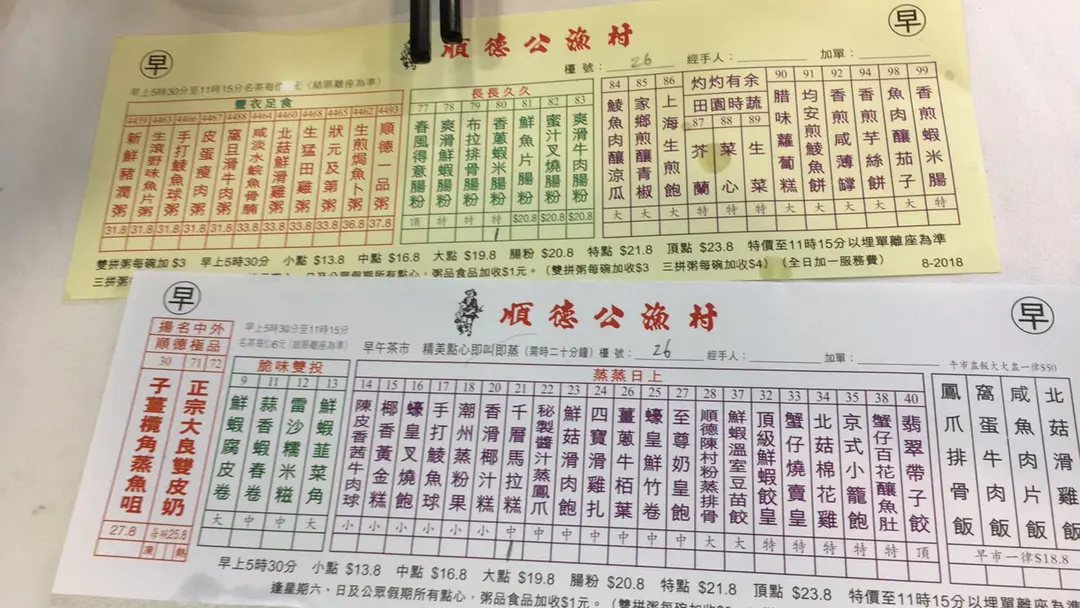 早
順德公漁村
早
早上5時30分至11時15分名茶每位 元(結賬離座為準)
檯號:26
經手人:
加單:
豐衣足食
4459 新鮮豬潤粥 31.8
4463 生滾野味魚片粥 31.8
4466 手打鯪魚球粥 31.8
4467 皮蛋瘦肉粥 31.8
4488 窩旦滑牛肉粥 31.8
4464 咸淡水鯇魚骨腩粥 33.8
4460 北菇鮮滑雞粥 33.8
4468 生猛田雞粥 33.8
4465 狀元及第粥 33.8
4462 生煎焗魚卜粥 36.8
4493 順德一品粥 37.8
長長久久
77 春風得意腸粉 頂
78 爽滑鮮蝦腸粉 特
79 布拉排骨腸粉 特
80 香蔥蝦米腸粉 特
81 鮮魚片腸粉 $20.8
82 蜜汁叉燒腸粉 $20.8
83 爽滑牛肉腸粉 $20.8
84 鯪魚肉釀涼瓜 大
85 家鄉煎釀青椒 大
86 上海生煎飽 大
灼灼有余
田園時蔬
87 芥蘭 特
88 菜心 特
89 生菜 特
90 腊味蘿蔔糕 大
91 均安煎鯪魚餅 大
92 香煎咸薄罉 大
94 香煎芋絲餅 大
98 魚肉釀茄子 大
99 香煎蝦米腸 特
雙拼粥每碗加$3 早上5時30分 小點$13.8 中點$16.8 大點$19.8 腸粉$20.8 特點$21.8 頂點$23.8 特價至11時15分以埋單離座為準
三拼粥 日及公眾假期所有點心,粥品食品加收$1元。(雙拼粥每碗加收$3 三拼粥每碗加收$4)(全日加一服務費) 8-2018
早
順德公漁村
早
揚名中外
順德極品
30 子薑欖角蒸魚咀 27.8
71 72 正宗大良雙皮奶 25.8
凍 熱
早上5時30分至11時15分
名茶每位6元(結賬離座為準)
早午茶市 精美點心即叫即蒸(需時二十分鐘) 檯號:26 經手人: 加單:
午市盅飯大大盅一律$50
脆味雙投
9 鮮蝦腐皮卷 大
11 蒜香蝦春卷 中
12 雷沙糯米糍 中
13 鮮蝦韮菜角 大
蒸蒸日上
14 陳皮香茜牛肉球 小
15 椰香黃金糕 小
16 蠔皇叉燒飽 小
17 手打鯪魚球 小
18 潮州蒸粉果 小
20 香滑椰汁糕 小
21 千層馬拉糕 中
22 秘製醬汁蒸鳳爪 中
23 鮮菇滑肉飽 中
24 四寶滑雞扎 中
26 薑蔥牛栢葉 中
25 蠔皇鮮竹卷 中
27 至尊奶皇飽 中
28 順德陳村粉蒸排骨 大
37 鮮蝦溫室豆苗餃 大
32 頂級鮮蝦餃皇 特
33 蟹仔燒賣皇 特
34 北菇棉花雞 特
35 京式小籠飽 特
38 蟹仔百花釀魚肚 特
40 翡翠帶子餃 頂
鳳爪排骨飯
窩蛋牛肉飯
咸魚肉片飯
北菇滑雞飯
早市一律$18.8
早上5時30分 小點$13.8 中點$16.8 大點$19.8 腸粉$20.8 特點$21.8 頂點$23.8 特價至11時15分以埋單離座為準
逢星期六、日及公眾假期所有點心,粥品食品加收$1元。(雙拼粥每碗加收$3 三拼粥每碗加收$4)(全日加一服務